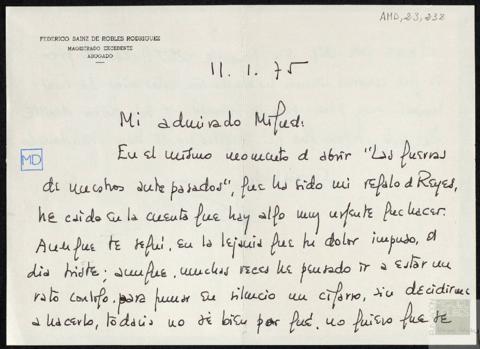 AMD,23,232
FEDERICO SAINZ DE ROBLES RODRIGUEZ
MAGISTRADO EXCEDENTE
ABOGADO
11. 1. 75
Mi admirado Miguel:
MD
En el mismo momento d abrir "Las guerras
de nuestros antepasados", que ha sido mi regalo d Reyes,
he caido en la cuenta que hay algo muy urgente que hacer.
Aunque te seguí, en la lejanía que tu dolor impuso, el
dia triste; aunque, muchas veces he pensado ir a estar un
rato contigo, para fumar en silencio un cigarro, sin decidirme
a hacerlo, todavia no sé bien por qué, no quiero que se